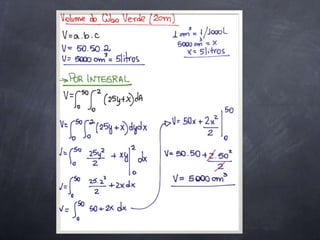 Volume do Cubo Verde (20m)
V=a.b.c
V= 50.50.2
V= 5000 cm³ = 5 litros
1 cm³ = 1/1000 L
5000 cm³ = x
x = 5 litros
→ POR INTEGRAL
V= ∫₀⁵⁰ ∫₀² (25y+x)dA
V= ∫₀⁵⁰ ∫₀² (25y+x)dydx
V= ∫₀⁵⁰ 25y²/2 + xy |₀² dx
V= ∫₀⁵⁰ 25.2²/2 + 2x dx
V= ∫₀⁵⁰ 50+2x dx
→ V= 50x + 2x²/2 |₀⁵⁰
V= 50.50 + 2.50²/2
V= 5000 cm³